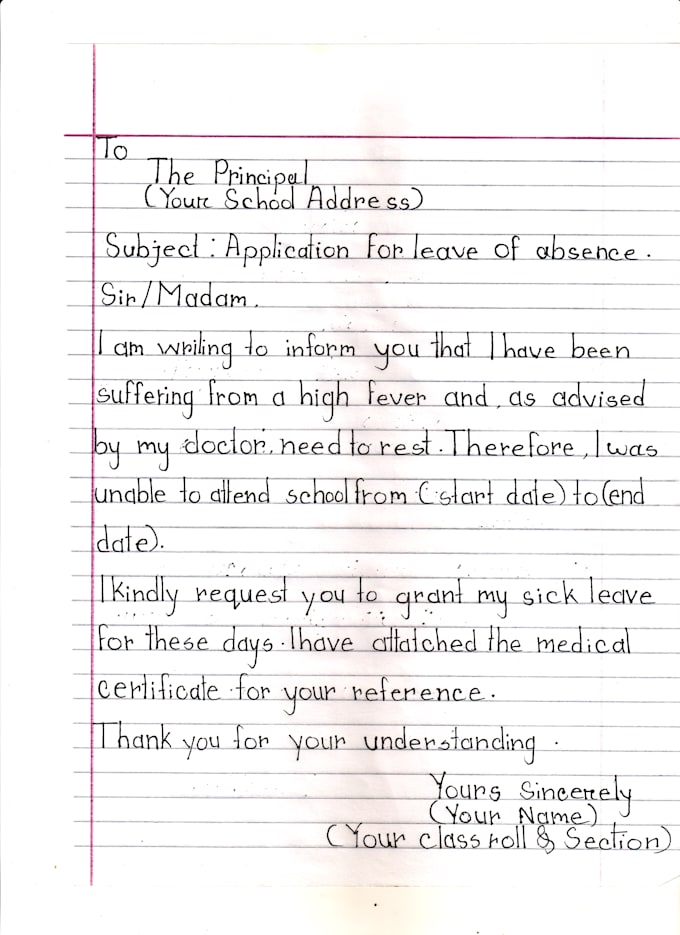 To
The Principal
(Your School Address)
Subject : Application for leave of absence.
Sir/Madam.
I am writing to inform you that I have been
suffering from a high fever and, as advised
by my doctor, need to rest. Therefore, I was
unable to attend school from (start date) to (end
date).
I kindly request you to grant my sick leave
for these days. I have attatched the medical
certificate for your reference.
Thank you for your understanding.
Yours Sincerely
(Your Name)
(Your class roll & Section)